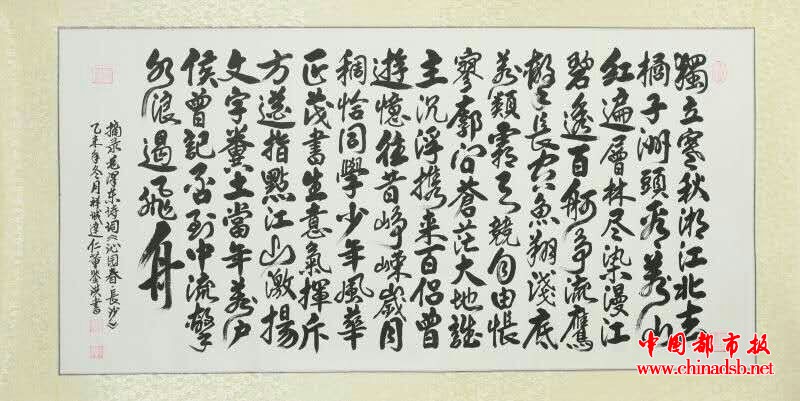 獨立寒秋湘江北去
橘子洲頭看萬山
红遍層林尽染漫江
碧透百舸争流鷹
擊長空魚翔淺底
萬類霜天競自由悵
寥廓问蒼茫大地誰
主沉浮携来百侣曾
遊憶往昔崢嶸歲月
稠恰同學少年風華
正茂書生意氣揮斥
方遒指點江山激揚
文字糞土當年萬户
侯曾記否到中流擊
水浪遏飛舟
摘录毛泽东诗词《沁园春·長沙》
乙未年冬月
中国都市报
www.chinadsb.net